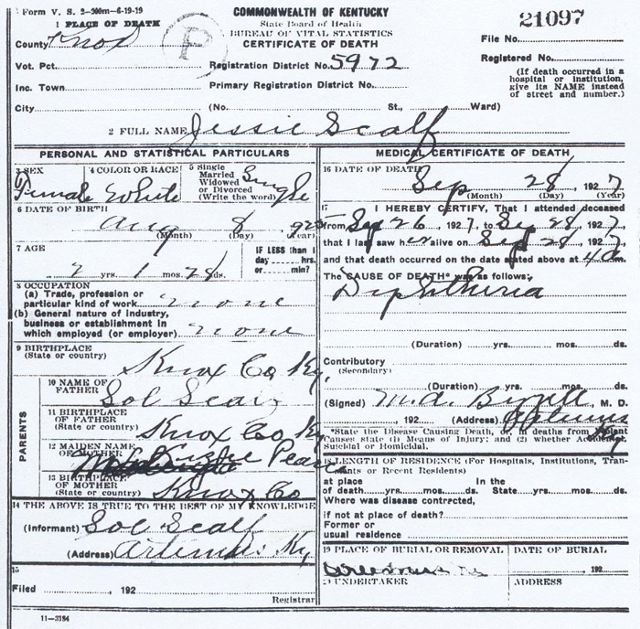 Form V. S. 2-300m-6-19-19
1 PLACE OF DEATH
County Knox
Vot. Pct.
Inc. Town
City
P
COMMONWEALTH OF KENTUCKY
State Board of Health
BUREAU OF VITAL STATISTICS
CERTIFICATE OF DEATH
Registration District No. 5972
Primary Registration District No.
(No. St., Ward)
21097
File No.
Registered No.
(If death occurred in a
hospital or institution,
give its NAME instead
of street and number.)
2 FULL NAME Jessie Scalf
PERSONAL AND STATISTICAL PARTICULARS
3 SEX
Female
4 COLOR OR RACE
White
5 Single
Married
Widowed
or Divorced
(Write the word) Single
6 DATE OF BIRTH
Aug 8 1925
(Month) (Day) (Year)
7 AGE
2 yrs. 1 mos. 28 ds.
IF LESS than 1
day hrs.
or min?
8 OCCUPATION
(a) Trade, profession or
particular kind of work none
(b) General nature of industry,
business or establishment in
which employed (or employer) none
9 BIRTHPLACE
(State or country)
Knox Co Ky
PARENTS
10 NAME OF
FATHER
Sol Scalf
11 BIRTHPLACE
OF FATHER
(State or country) Knox Co Ky
12 MAIDEN NAME
OF MOTHER
13 BIRTHPLACE
OF MOTHER
(State or country) Knox Co
14 THE ABOVE IS TRUE TO THE BEST OF MY KNOWLEDGE
(Informant) Sol Scalf
(Address) Artemus Ky
15
Filed , 192
Registrar
11-3184
MEDICAL CERTIFICATE OF DEATH
16 DATE OF DEATH
Sep 28, 1927
(Month) (Day) (Year)
17 I HEREBY CERTIFY, That I attended deceased
from Sep 26, 1927, to Sep 28, 1927,
that I last saw her alive on Sep 28, 1927,
and that death occurred on the date stated above at 4 a m.
The CAUSE OF DEATH* was as follows:
Diphtheria
(Duration) yrs. mos. ds.
Contributory
(Secondary)
(Duration) yrs. mos. ds.
(Signed) M. D.
, 192 (Address) Artemus
*State the Disease Causing Death, or, in deaths from Violent
Causes state (1) Means of Injury; and (2) whether Accidental,
Suicidal or Homicidal.
18 LENGTH OF RESIDENCE (For Hospitals, Institutions, Transients
or Recent Residents)
at place In the
of death yrs. mos. ds. State yrs. mos. ds.
Where was disease contrcted,
if not at place of death?
Former or
usual residence
19 PLACE OF BURIAL OR REMOVAL
DATE OF BURIAL
, 192
20 UNDERTAKER
ADDRESS